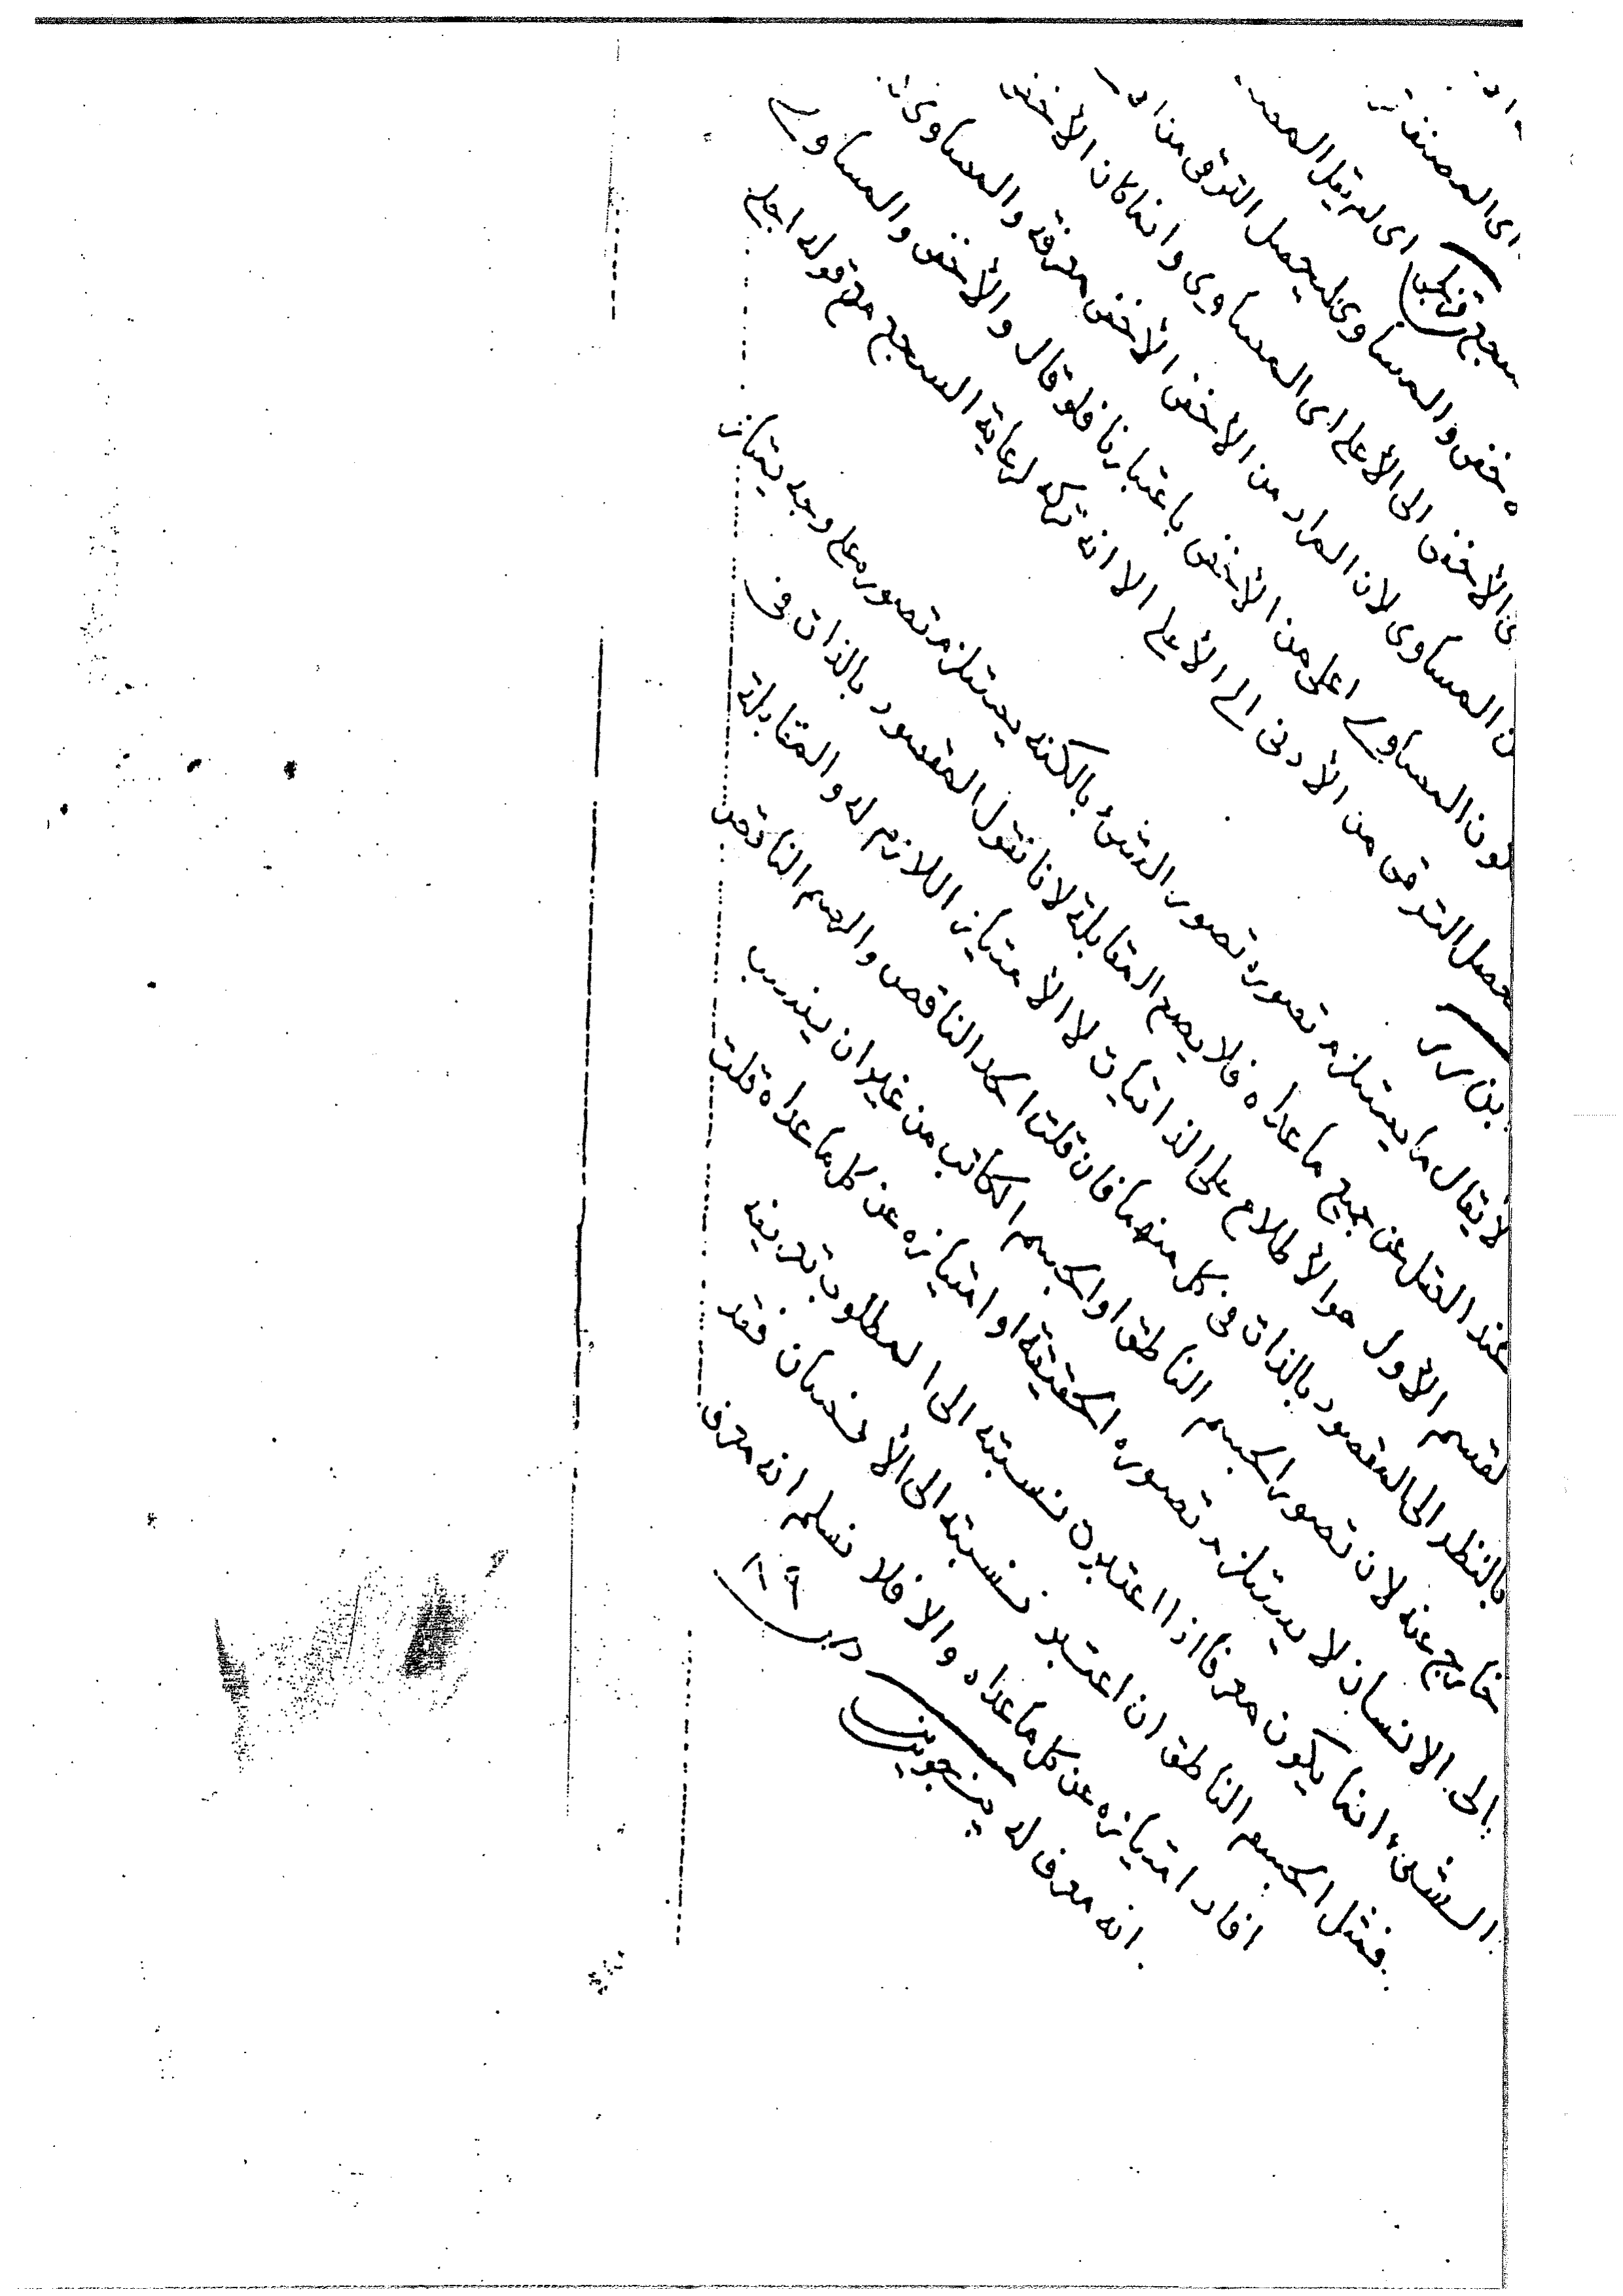 اى المصنف
سجع اى لم يقل
خفى والمساوى ليحصل الترقى من
الأخفى الى الأعلى اى المساوى وانما كان الأخفى
المساوى لان المراد من الاخفى الأخفى معرفة والمساوى
المساوى اعلى من الأخفى باعتبارنا فلو قال والأخفى والمساوى
يحصل الترقى من الأدنى الى الأعلى الا انه تركه لرعاية السجع مع قوله اجلى
لأيقال ما يستلزم تصوره تصور الشئ بالكنه يستلزم تصوره على وجه يمتاز
عند العقل عن جميع ما عداه فلا يصح المقابلة لانا نقول المقصود بالذات فى
لقسم الأول هو الأطلاع على الذاتيات لا الأمتياز اللازم له والمقابلة
بالنظر الى المقصود بالذات فى كل منهما فان قلت الحد الناقص والرسم الناقص
خارج عنه لان تصور الجسم الناطق او الجسم الكاتب من غير ان ينسب
الى الانسان لا يستلزم تصوره الحقيقة او امتيازه عن كل ما عداه قلت
الشئ انما يكون معرفا اذا اعتبرت نسبته الى المطلوب تعريفه
فمثل الجسم الناطق ان اعتبر نسبته الى الأنسان فقد
افاد امتيازه عن كل ما عداه والا فلا نسلم انه معرف
انه معرف له